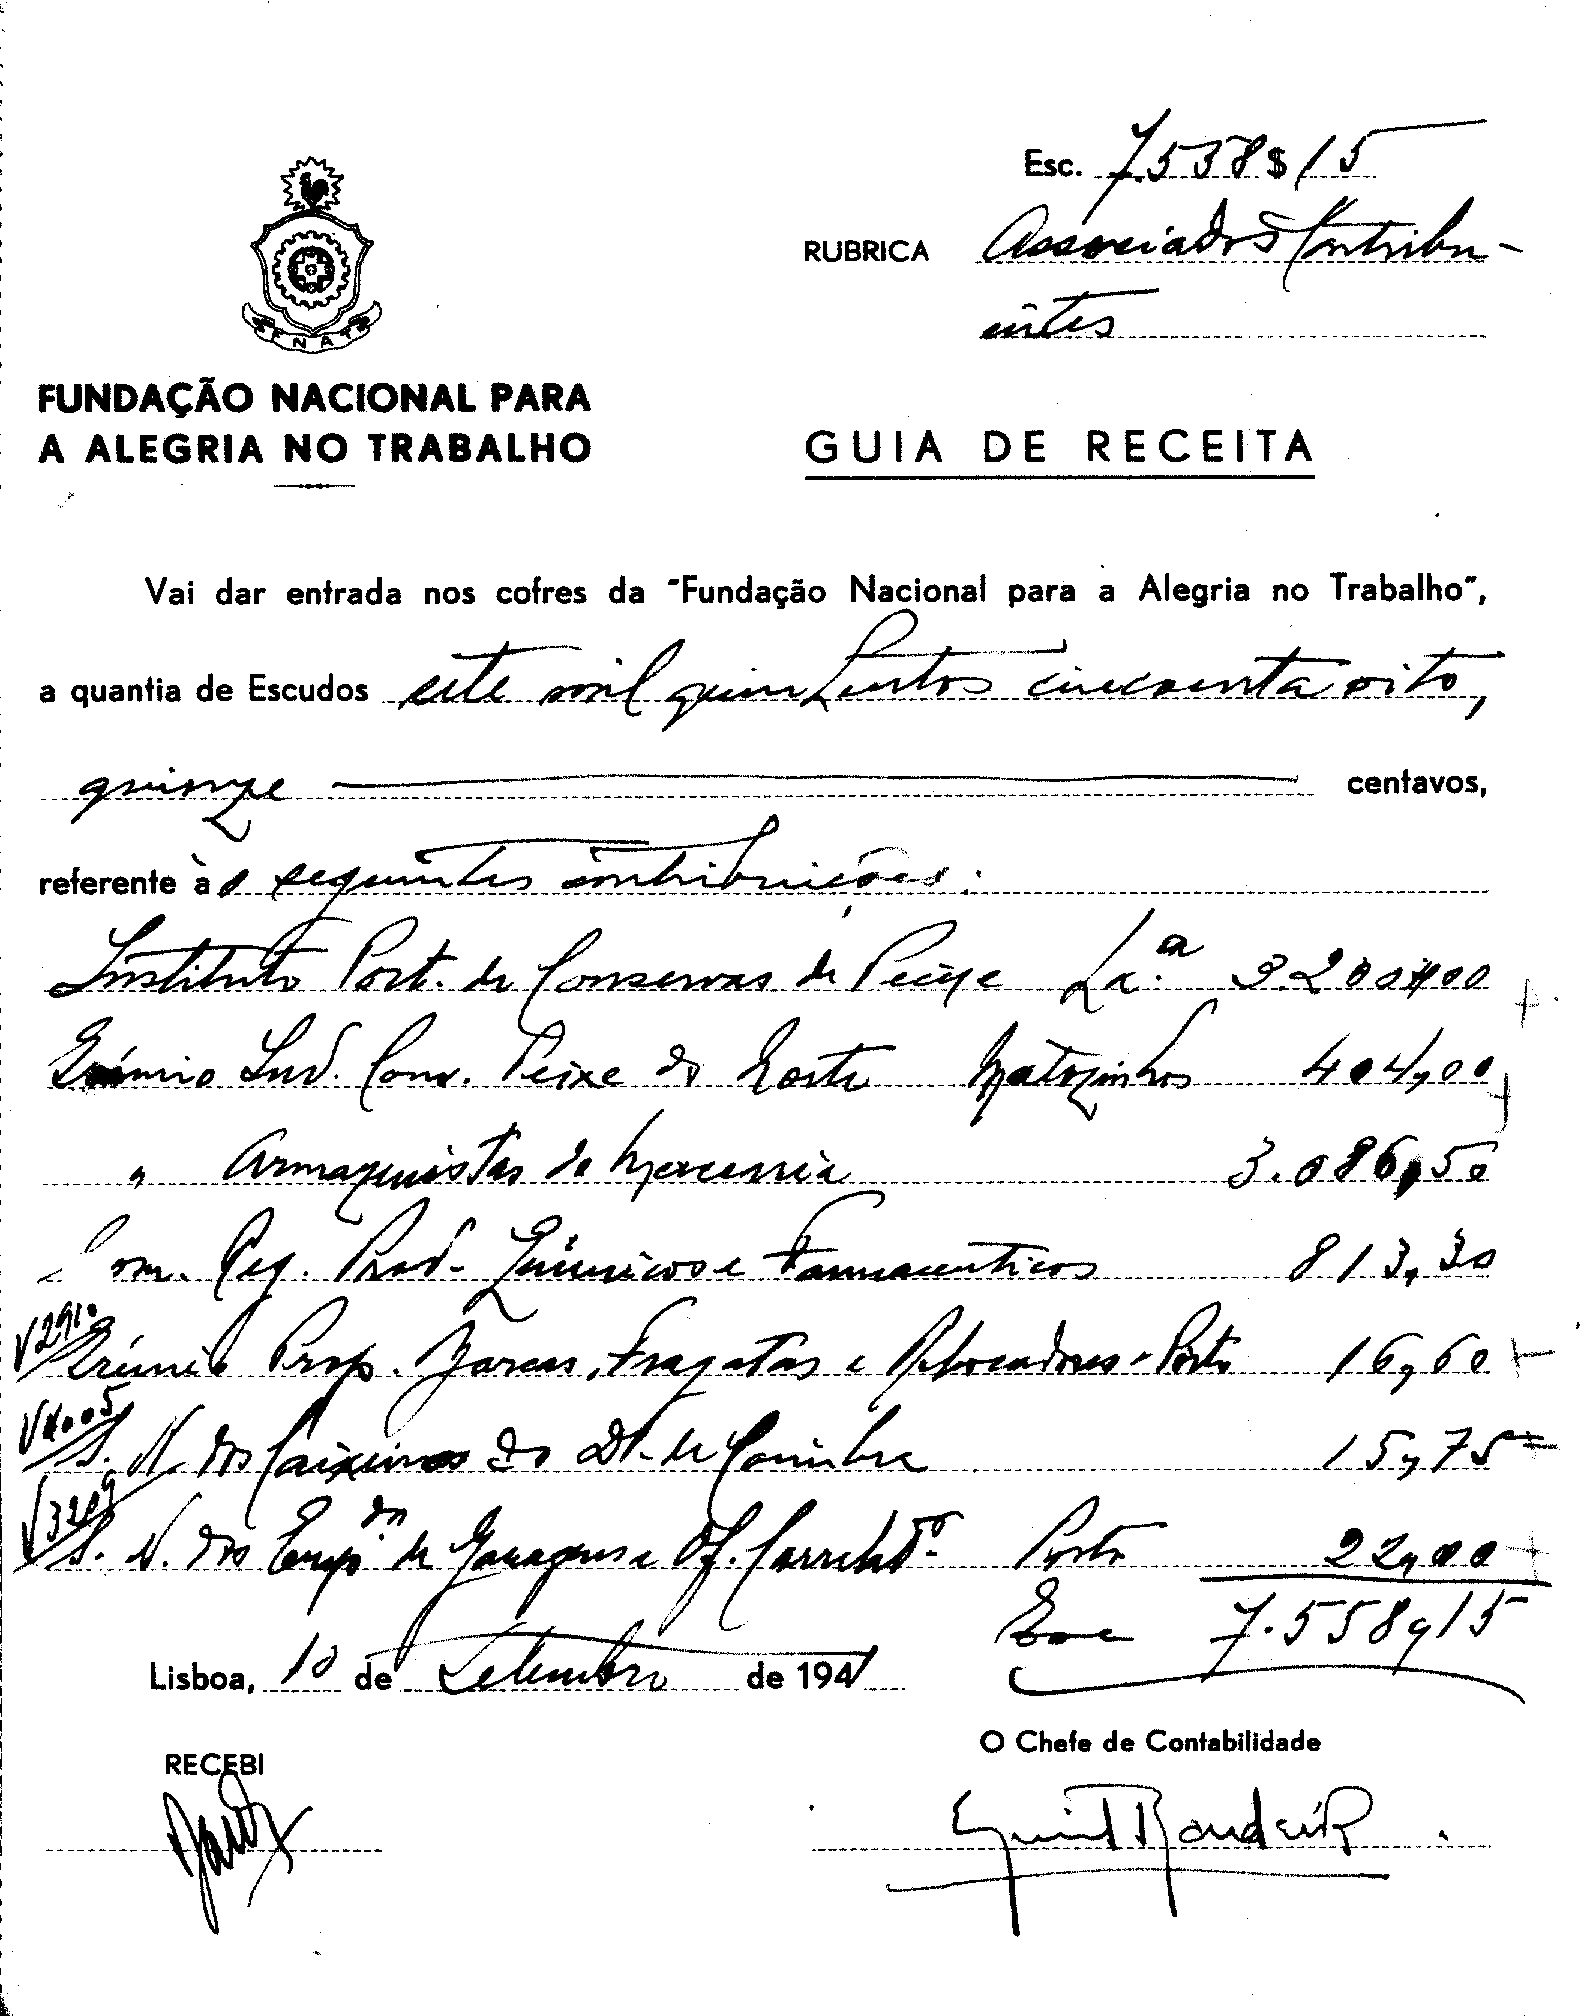 Esc. 7.558$15
RUBRICA Associados Contribu-
intes
FNAT
FUNDAÇÃO NACIONAL PARA
A ALEGRIA NO TRABALHO
GUIA DE RECEITA
Vai dar entrada nos cofres da "Fundação Nacional para a Alegria no Trabalho",
a quantia de Escudos sete mil quinhentos cincoenta oito,
quinze centavos,
referente às seguintes contribuições:
Instituto Port. de Conservas de Peixe 3.200$00
Grémio Ind. Cons. Peixe do Norte Matozinhos 404,00
" Armazenistas de Mercearia 3.086,50
Com. Reg. Prod. Químicos e Farmaceuticos 813,30
V2910
Grémio Prop. Barcas, Fragatas e Rebocadores - Porto 16,60
V4005
S. N. dos Caixeiros do Dt. de Coimbra 15,75
V3209
S. N. dos Empdos de Garagens e Of. Porto 22,00
Esc 7.558,15
Lisboa, 10 de Setembro de 1941
RECEBI
O Chefe de Contabilidade